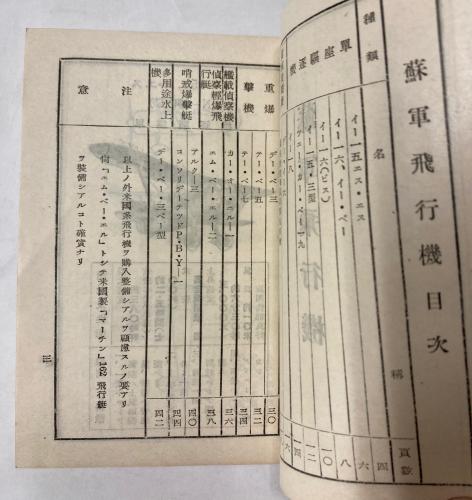 蘇軍飛行機目次
種類
名
稱
頁數
單座驅逐機
イー一五エス・エス
四
イー一六、イー・ペー
六
イー一六(ビス)
八
イー一五・三型
一〇
ツェー・カー・ベー一九
一二
イー一八
重爆擊機
デー・ベー三
三〇
テー・ベー五
三二
テー・ベー七
三四
艦載偵察機
カー・オー・エルー一
三六
偵察輕爆飛行艇
エム・ベー・エルー二
三八
哨戒爆擊艇
アルクー三
四〇
コンソリデーテッドP・B・Y—一
四四
多用途水上機
デー・ベー・三ベー型
四二
注意
以上ノ外米國系飛行機ヲ購入整備シアルヲ顧慮スルノ要アリ
尙「エム・ベー・エル」トシテ米國製「マーチン」162飛行艇
ヲ裝備シアルコト確實ナリ
三